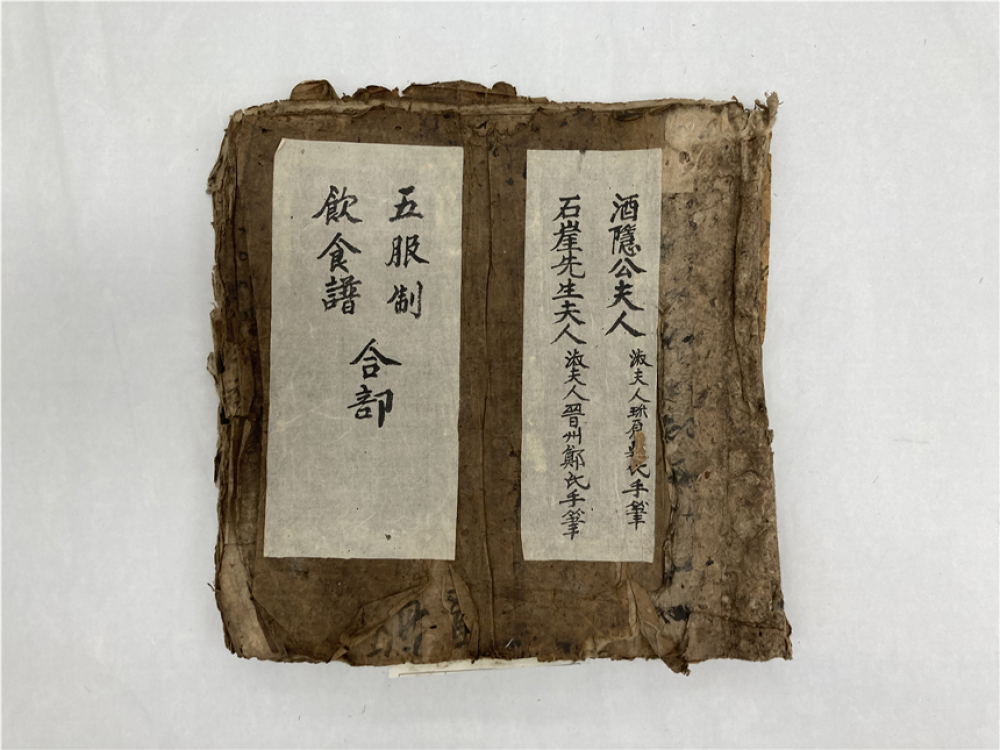 酒隱公夫人 淑夫人珎原吳氏手筆
石崖先生夫人 淑夫人晋州鄭氏手筆
五服制
飮食譜
合部